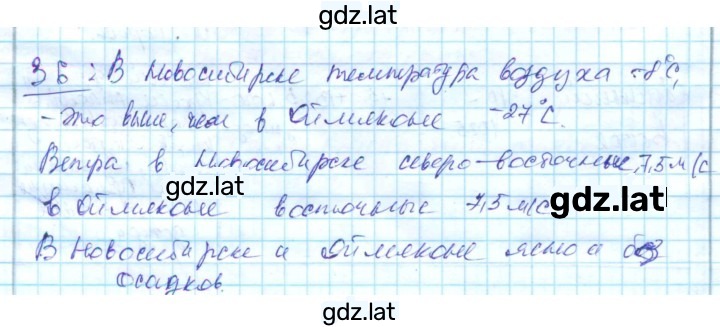 gdz.lat
36: В Новосибирске температура воздуха -8°С,
- это выше, чем в Оймяконе -27°С.
Ветра в Новосибирске северо-восточные, 7,5 м/с
gdz.lat
gdz.lat
в Оймяконе восточные 7,5 м/с
В Новосибирске и Оймяконе ясно и без
осадков.
gdz.lat